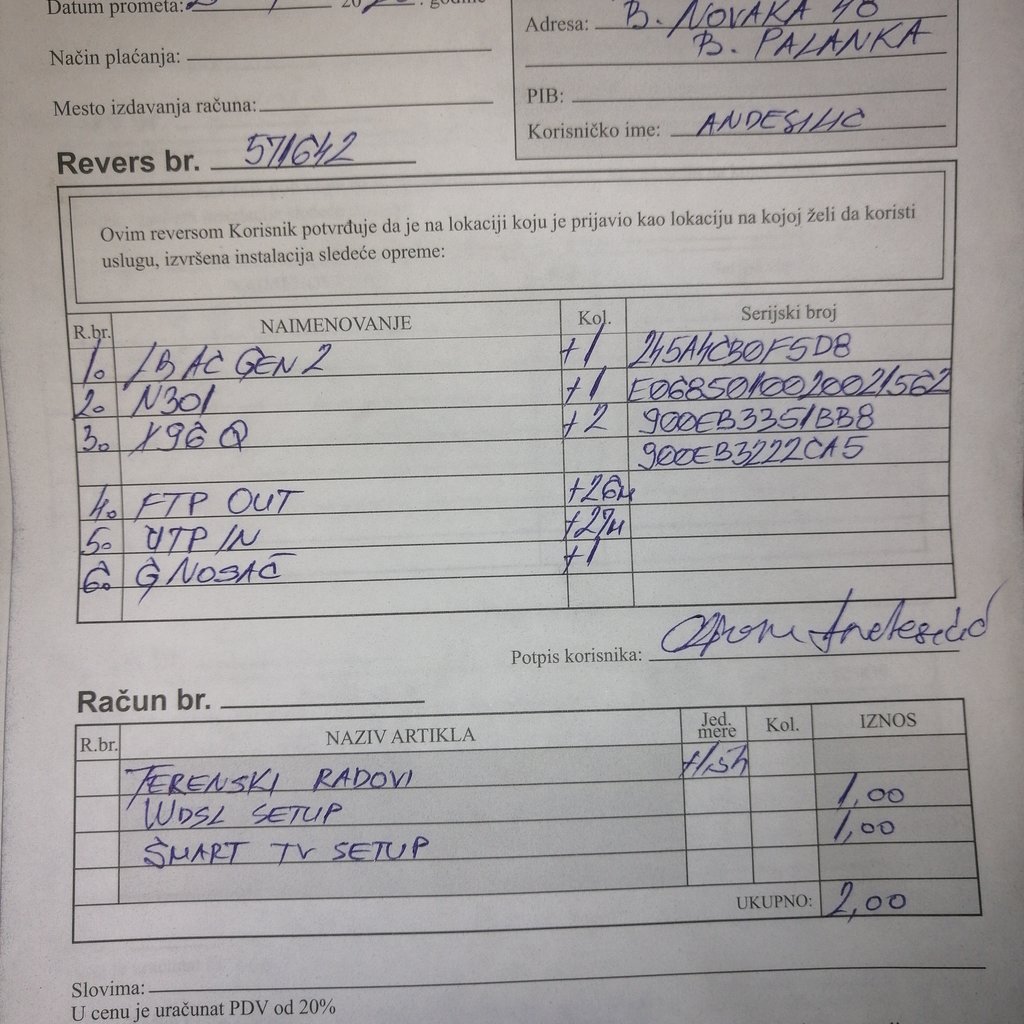 Datum prometa: 20 . godine
Adresa: B. NOVAKA 48
B. PALANKA
Način plaćanja:
Mesto izdavanja računa:
PIB:
Korisničko ime: ANDESILIĆ
Revers br. 571642
Ovim reversom Korisnik potvrđuje da je na lokaciji koju je prijavio kao lokaciju na kojoj želi da koristi
uslugu, izvršena instalacija sledeće opreme:
R.br. NAIMENOVANJE Kol. Serijski broj
1. LBAC GEN 2 +1 245A4CB0F5D8
2. N301 +1 E0685010020021562
3. X96 Q +2 900EB3351BB8
900EB3222CA5
4. FTP OUT +26M
5. UTP IN +27M
6. G NOSAČ +1
Potpis korisnika:
Račun br.
R.br. NAZIV ARTIKLA Jed. mere Kol. IZNOS
TERENSKI RADOVI
WDSL SETUP 1,00
SMART TV SETUP 1,00
UKUPNO: 2,00
Slovima:
U cenu je uračunat PDV od 20%